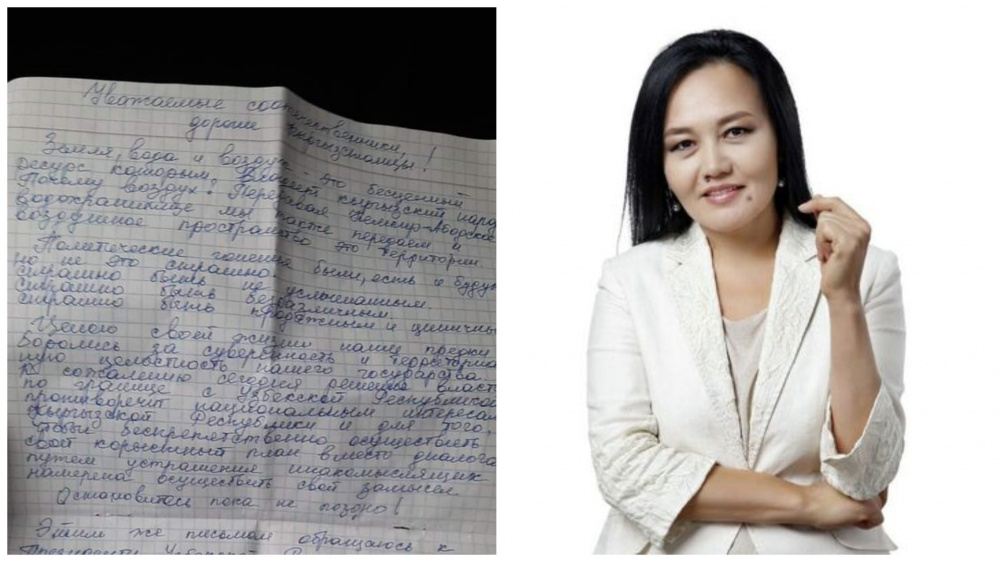 Уважаемые соотечественники,
дорогие кыргызстанцы!
Земля, вода и воздух - это бесценный
ресурс которым владеет кыргызский народ
Почему воздух? Передавая Кемпир-Абадское
водохранилище мы также передаем и
воздушное пространство этой территории.
Политические гонения были, есть и будут
но не это страшно.
Страшно быть не услышанным.
Страшно быть безразличным.
Страшно быть продажным и циничным
Ценою своей жизни наши предки
боролись за суверенность и территориаль
ную целостность нашего государства.
К сожалению сегодня решение власти
по границе с Узбекской Республикой
противоречит национальным интересам
Кыргызской Республики и для того,
чтобы беспрепятственно осуществить
свой корыстный план вместо диалога
путем устрашения инакомыслящих
намерена осуществить свой замысел.
Остановитесь пока не поздно!
Этим же письмом обращаюсь к